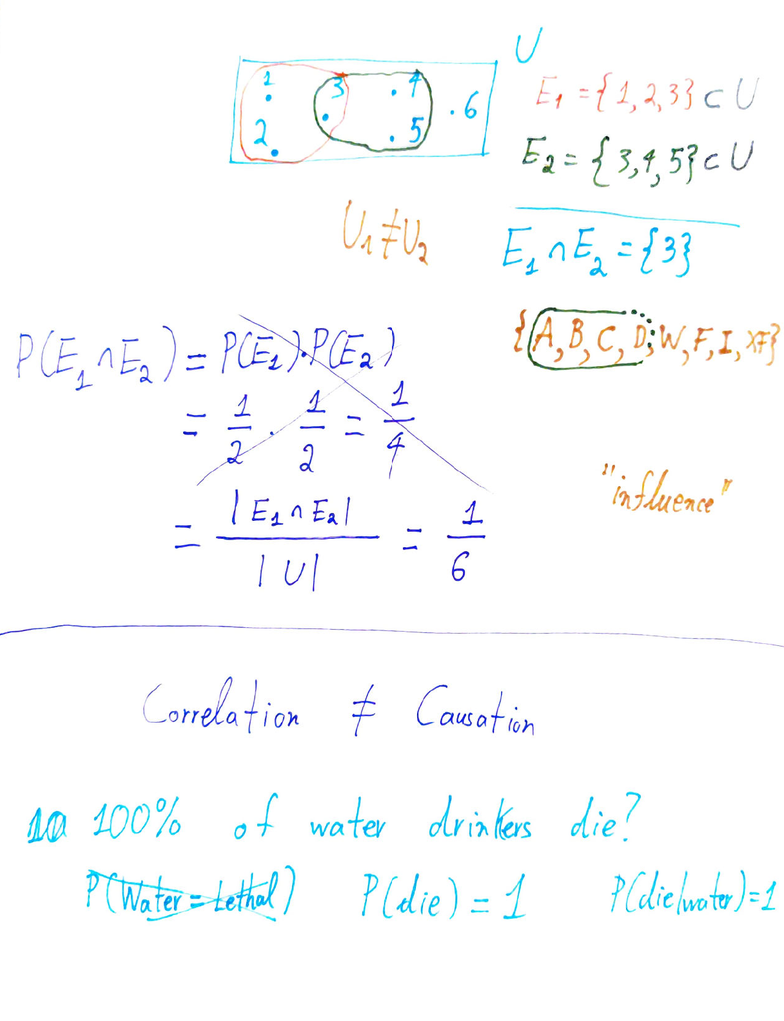 U
1 3 4
2 5 .6
E₁ = {1,2,3} ⊂ U
E₂ = {3,4,5} ⊂ U
U₁ ≠ U₂
E₁ ∩ E₂ = {3}
{A, B, C, D, W, F, I, XF}
P(E₁ ∩ E₂) = P(E₁)·P(E₂)
= 1/2 · 1/2 = 1/4
"influence"
= |E₁ ∩ E₂| / |U| = 1/6
Correlation ≠ Causation
100% of water drinkers die?
P(Water = Lethal) P(die) = 1 P(die|water) = 1